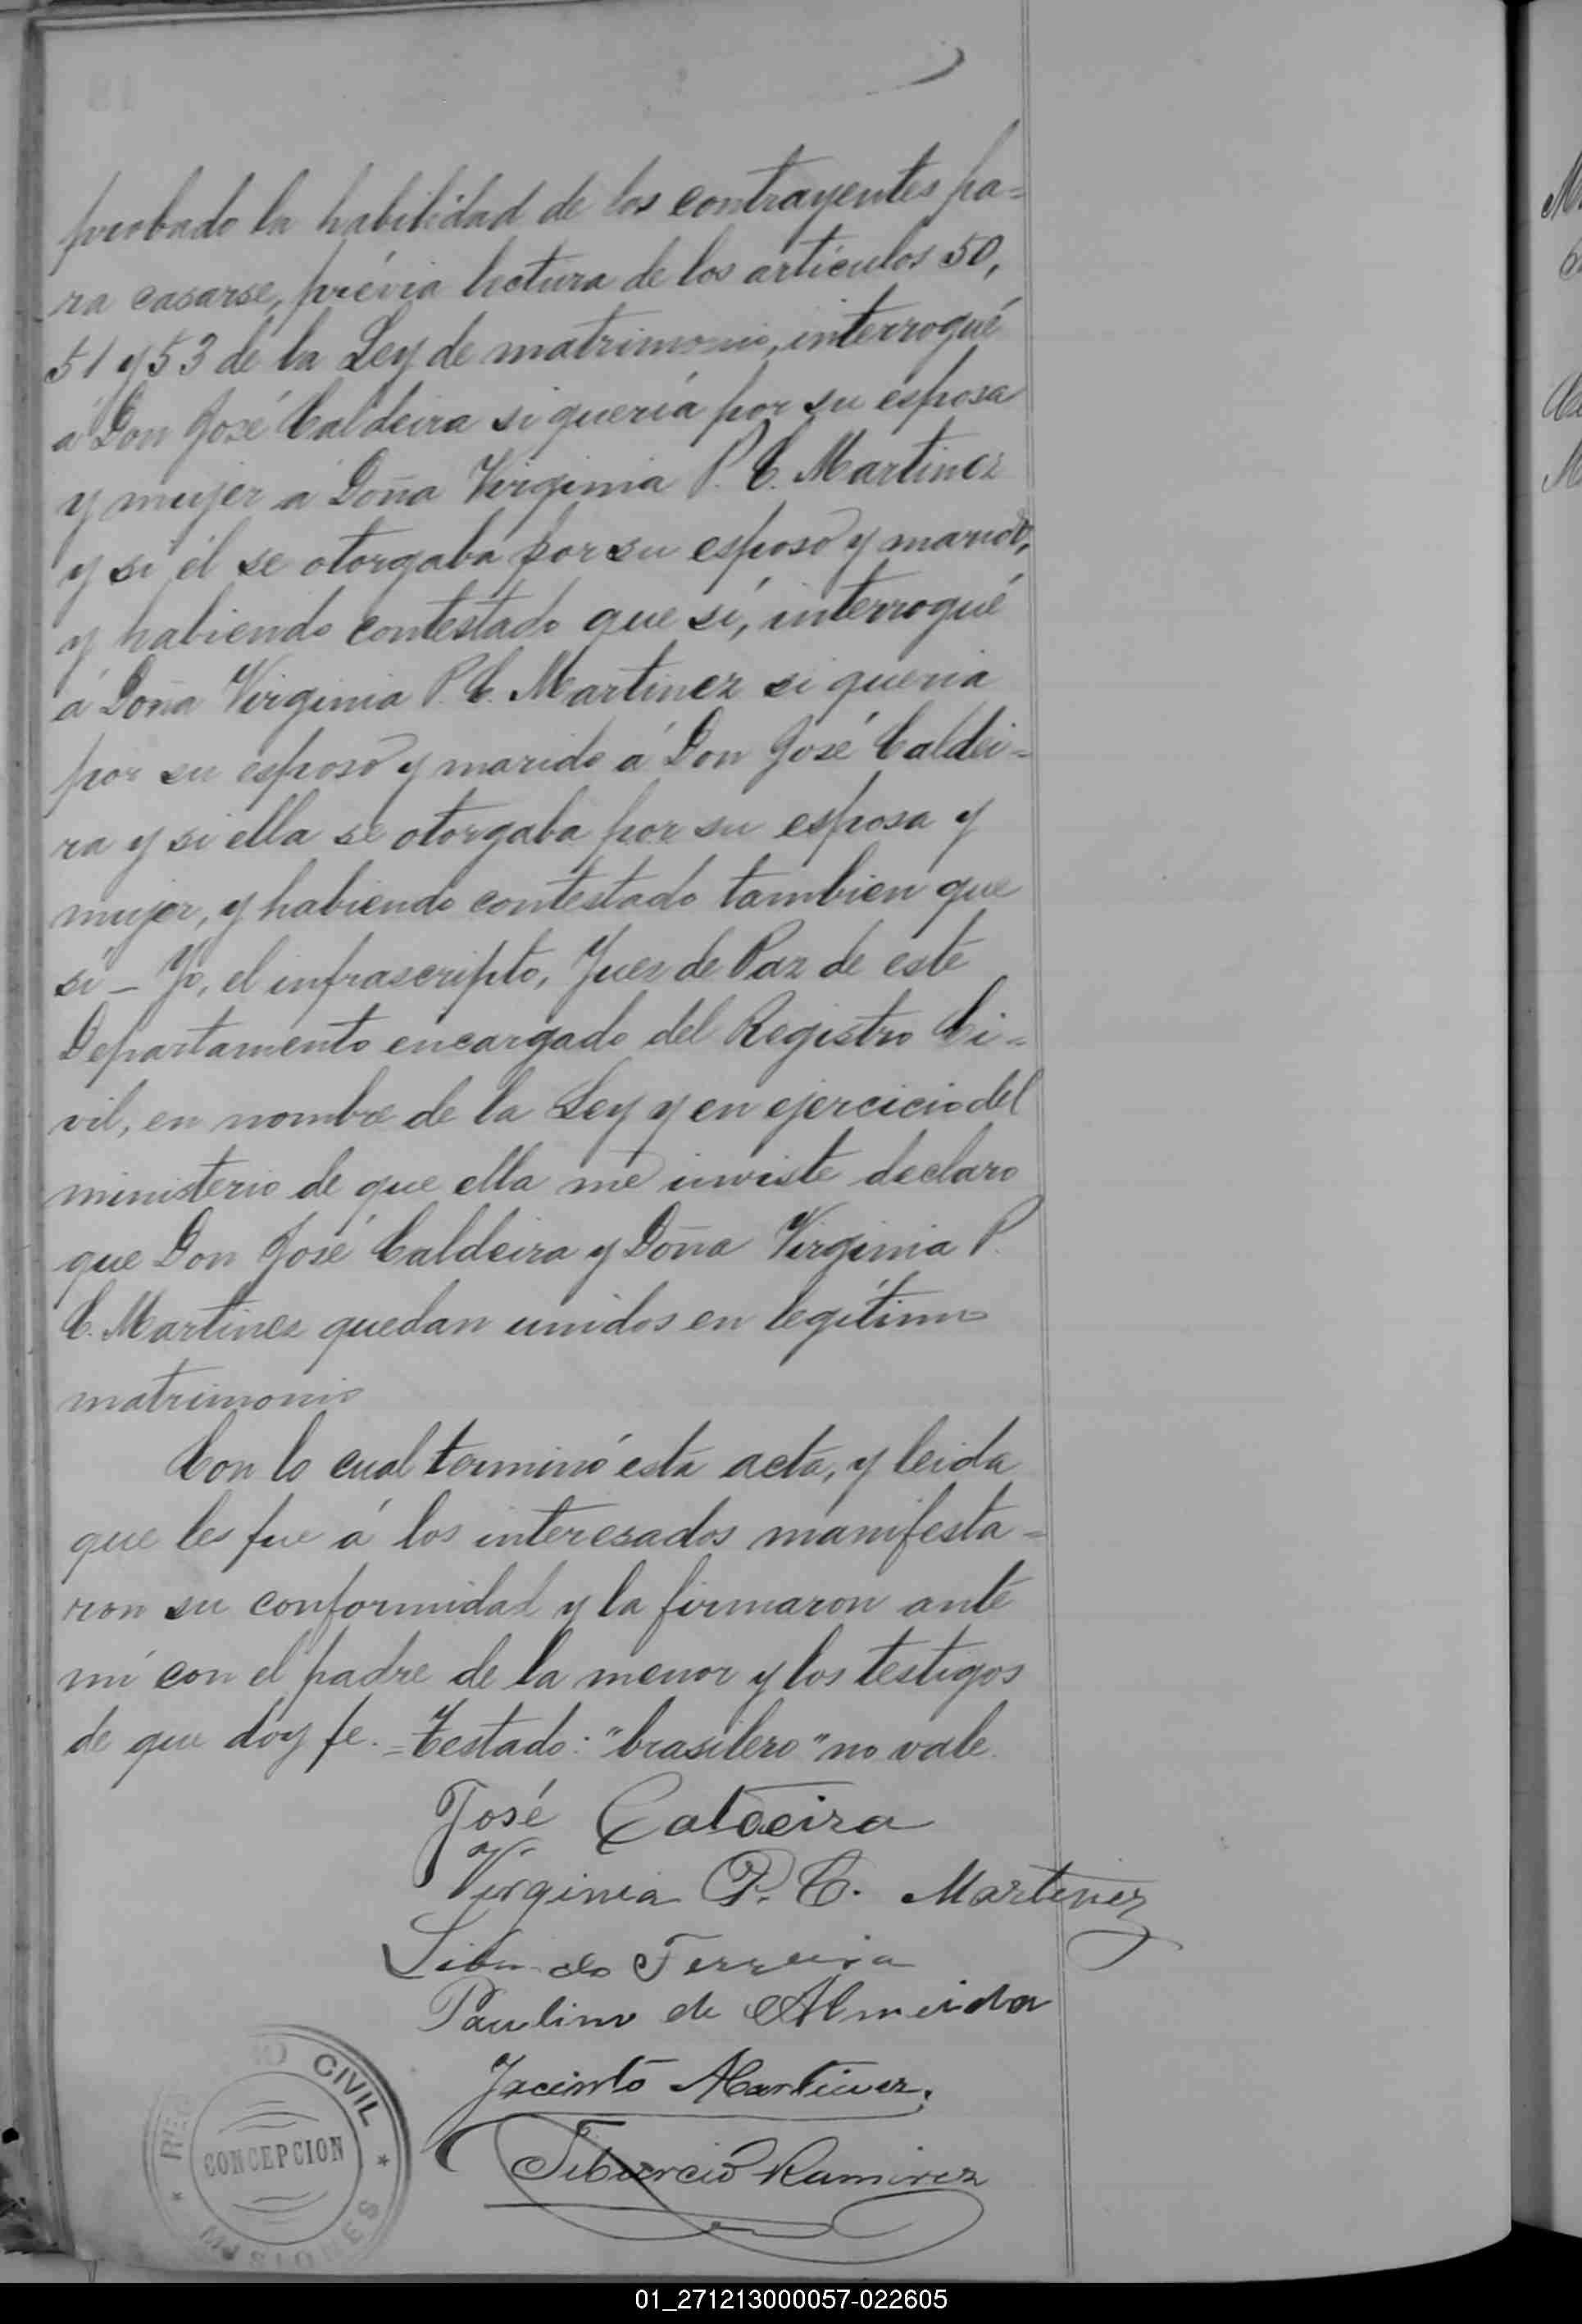 probado la habilidad de los contrayentes pa=
ra casarse, prévia lectura de los artículos 50,
51 y 53 de la Ley de matrimonio, interrogué
á Don José Caldeira si quería por su esposa
y mujer a Doña Virginia P. C. Martinez
y si él se otorgaba por su esposo y marido,
y habiendo contestado que sí, interrogué
á Doña Virginia P. C. Martinez si queria
por su esposo y marido á Don José Caldei=
ra y si ella se otorgaba por su esposa y
mujer, y habiendo contestado tambien que
sí - Yo, el infrascripto, Juez de Paz de este
Departamento encargado del Registro Ci=
vil, en nombre de la Ley y en ejercicio del
ministerio de que ella me inviste declaro
que Don José Caldeira y Doña Virginia P.
C. Martinez quedan unidos en legítimo
matrimonio
Con lo cual terminó esta acta, y leida
que les fue á los interesados manifesta=
ron su conformidad y la firmaron ante
mí con el padre de la menor y los testigos
de que doy fe. = Testado: "brasilero" no vale.
José Caldeira
Virginia P. C. Martinez
Ferreira
Paulino de Almeida
Jacinto Martinez.
Tiburcio Ramirez
CIVIL
CONCEPCION
MISIONES
01_271213000057-022605